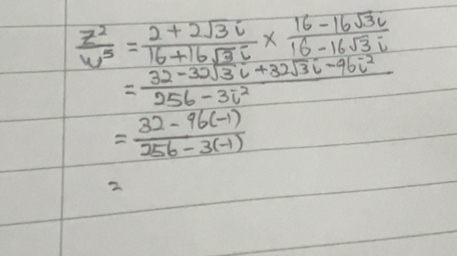 z²/w⁵ = (2 + 2√3 i)/(16 + 16√3 i) × (16 - 16√3 i)/(16 - 16√3 i)
= (32 - 32√3 i + 32√3 i - 96i²)/(256 - 3i²)
= (32 - 96(-1))/(256 - 3(-1))
=